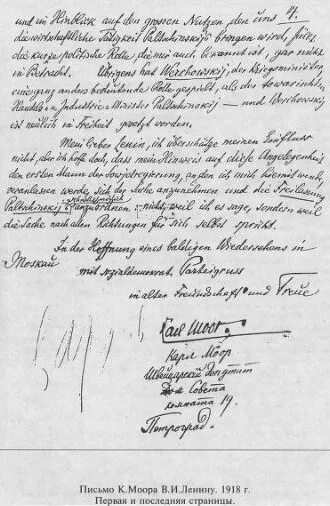 4.
und im Hinblick auf den grossen Nutzen den uns
die wirtschaftliche Tätigkeit Paltschinskij's bringen wird, fällt
die kurze politische Rolle, die mir auch bekannt ist, gar nicht
in Betracht. Übrigens hat Werchowskij, der Kriegsminister
eine ganz anders bedeutende Rolle gespielt, als der towarischtsch
Handels- u. Industrie-Minister Paltschinskij — und Werchowskij
ist neulich in Freiheit gesetzt worden.
Mein lieber Lenin, ich überschätze meinen Einfluss
nicht, aber ich hoffe doch, dass mein Hinweis auf diese Angelegenheit
den ersten Mann der Sowjetregierung, an den ich mich hiermit wende,
veranlassen werde, sich der Sache anzunehmen und die Freilassung
Paltschinskij's anzuordnen — nicht, weil ich es sage, sondern weil
die Sache nach allen Richtungen für sich selbst spricht.
In der Hoffnung eines baldigen Wiedersehens in
Moskau
mit sozialdemokrat. Parteigruss
in alter Freundschaft und Treue
Karl Moor.
Карл Моор
Швейцарский Депутат
Дом Совета
комната 19.
Петроград.
Письмо К.Моора В.И.Ленину. 1918 г.
Первая и последняя страницы.